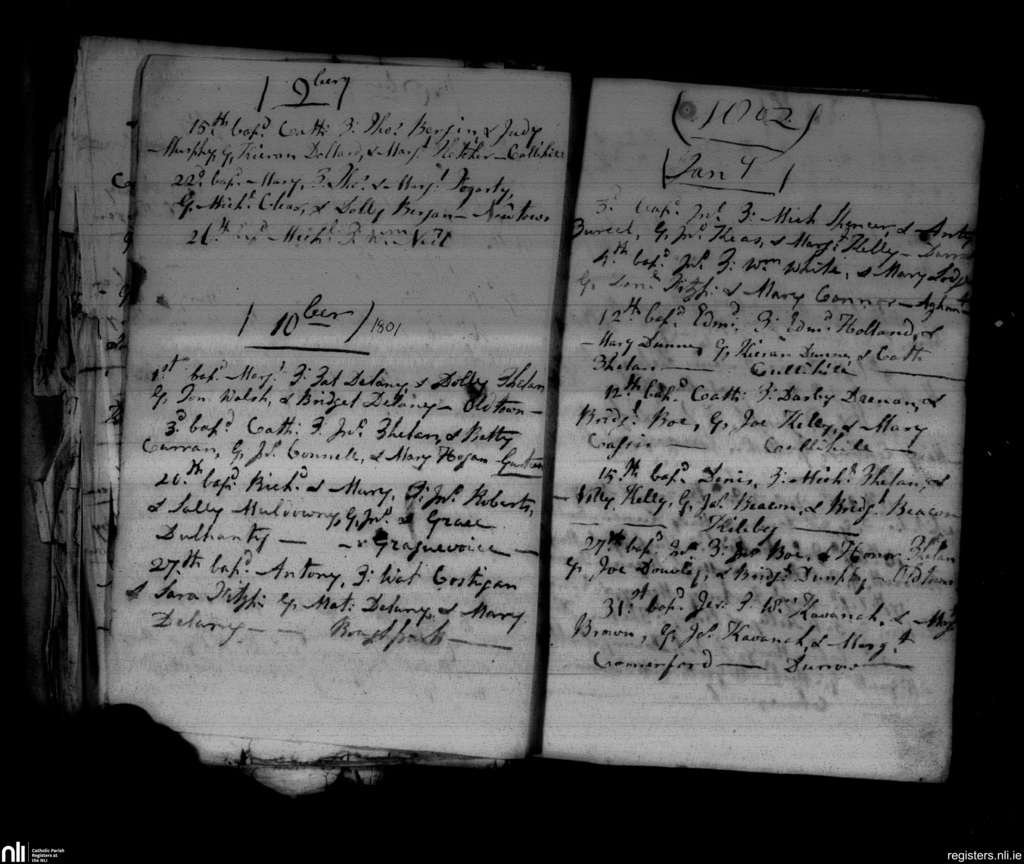 9ber
15th bapd Cath: F: Thos Bergin, & Judy
Murphy, G, Kieran Dollard, & Margt Fletcher - Cullihill
22d bapd Mary, F: Thos & Margt Fogarty,
G, Michl Cleas, & Dolly Bergan - Newtown
26th bapd Michl F: Wm Neil
10ber 1801
1st bapd Margt F: Pat Delany & Dolly Phelan
G, Walsh, & Bridget Delany - Oldtown -
3d bapd Cath: F: Jno Phelan, & Betty
Curran, G, Jno Connell, & Mary Hogan -
20th bapd Richd & Mary, F: Jno Roberts,
& Sally Muldowny, G, Jno & Grace
Dulhanty - - Graguevoice -
27th bapd Antony, F: Wat Costigan
& Sara Fitzp: G, Mat: Delany, & Mary
Delany - -
(1802)
Jany
3d bapd Jno F: Mich Spencer, &
G, Jno Keas, & Margt Kelly -
4th bapd Jno F: Wm White, & Mary
G, Fitzp: & Mary Connor -
12th bapd Edmd F: Edmd Holland, &
Mary Dunne, G, Kieran Dunne, & Cath
Phelan - Cullihill -
12th bapd Cath: F: Darby Drenan, &
Bridgt Boe, G, Joe Kelly, & Mary
- Cullihill -
15th bapd Denis, F: Michl Phelan, &
Kelly, G, Jno Beacon, & Bridgt Beacon
- Kileby -
27th bapd Jno F: Jno Boe, & Honor Phelan
G, Joe Dowley, & Bridgt Dunphy - Oldtown
31st bapd Jer: F: Wm Kavanah, & Margt
Brown, G, Jno Kavanah, & Margt
Comerford - Durrow -
nli
Catholic Parish
Registers at
the NLI
registers.nli.ie